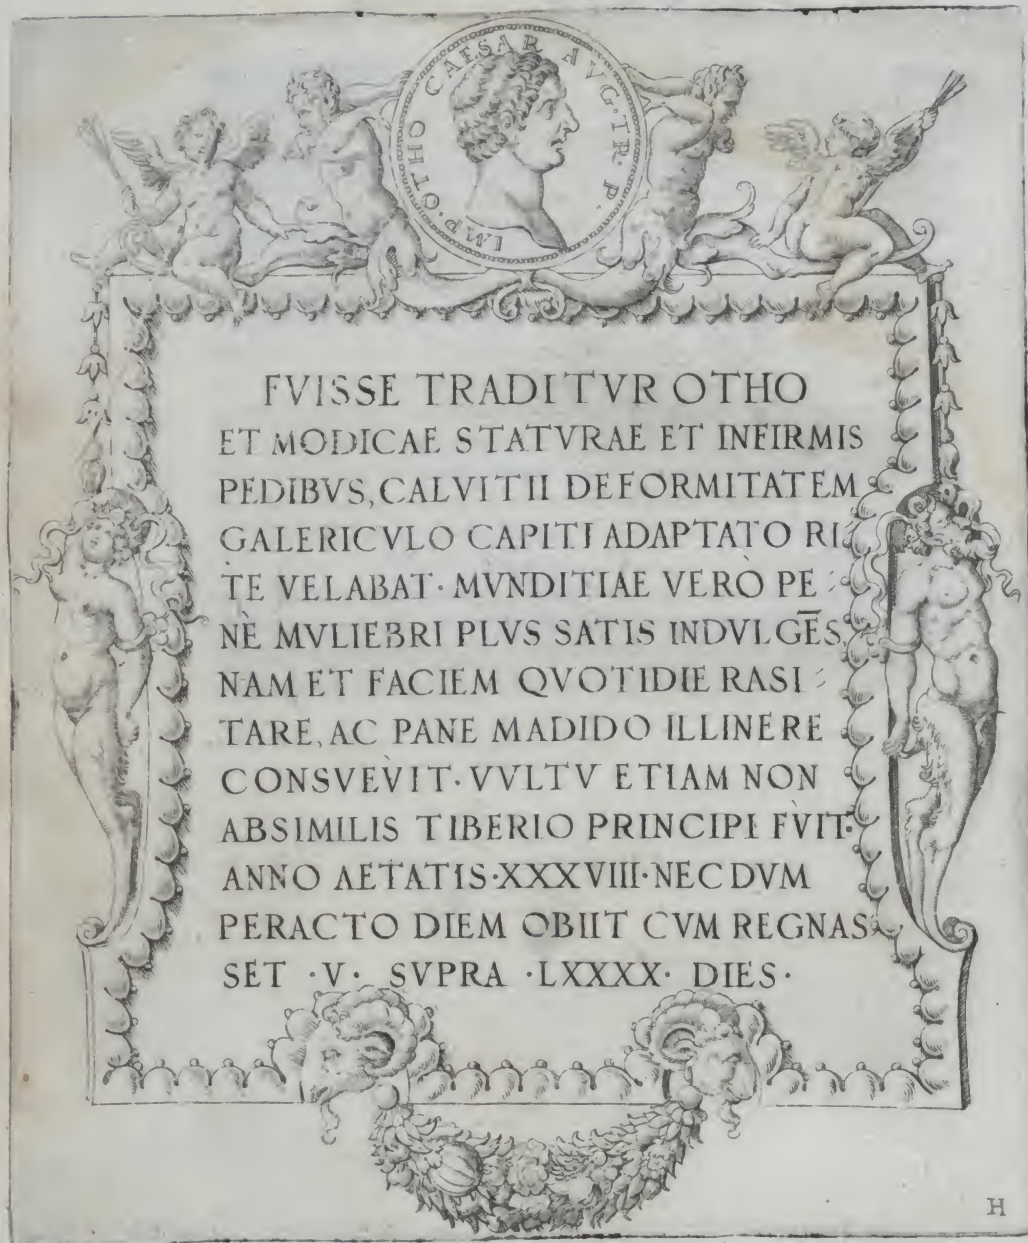 IMP·OTHO CAESAR AVG·TR·P·
FVISSE TRADITVR OTHO
ET MODICAE STATVRAE ET INFIRMIS
PEDIBVS, CALVITII DEFORMITATEM
GALERICVLO CAPITI ADAPTATO RI
TE VELABAT· MVNDITIAE VERÒ PE:
NÈ MVLIEBRI PLVS SATIS INDVLGE̅S,
NAM ET FACIEM QVOTIDIE RASI:
TARE, AC PANE MADIDO ILLINERE
CONSVEVIT· VVLTV ETIAM NON
ABSIMILIS TIBERIO PRINCIPI FVIT·
ANNO AETATIS·XXXVIII·NECDVM
PERACTO DIEM OBIIT CVM REGNAS:
SET ·V· SVPRA ·LXXXX· DIES·
H